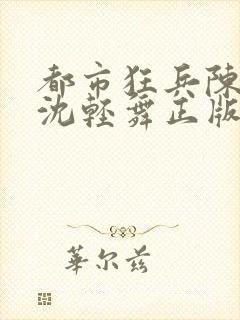 都市狂兵陳
沈輕舞正版
華尔兹